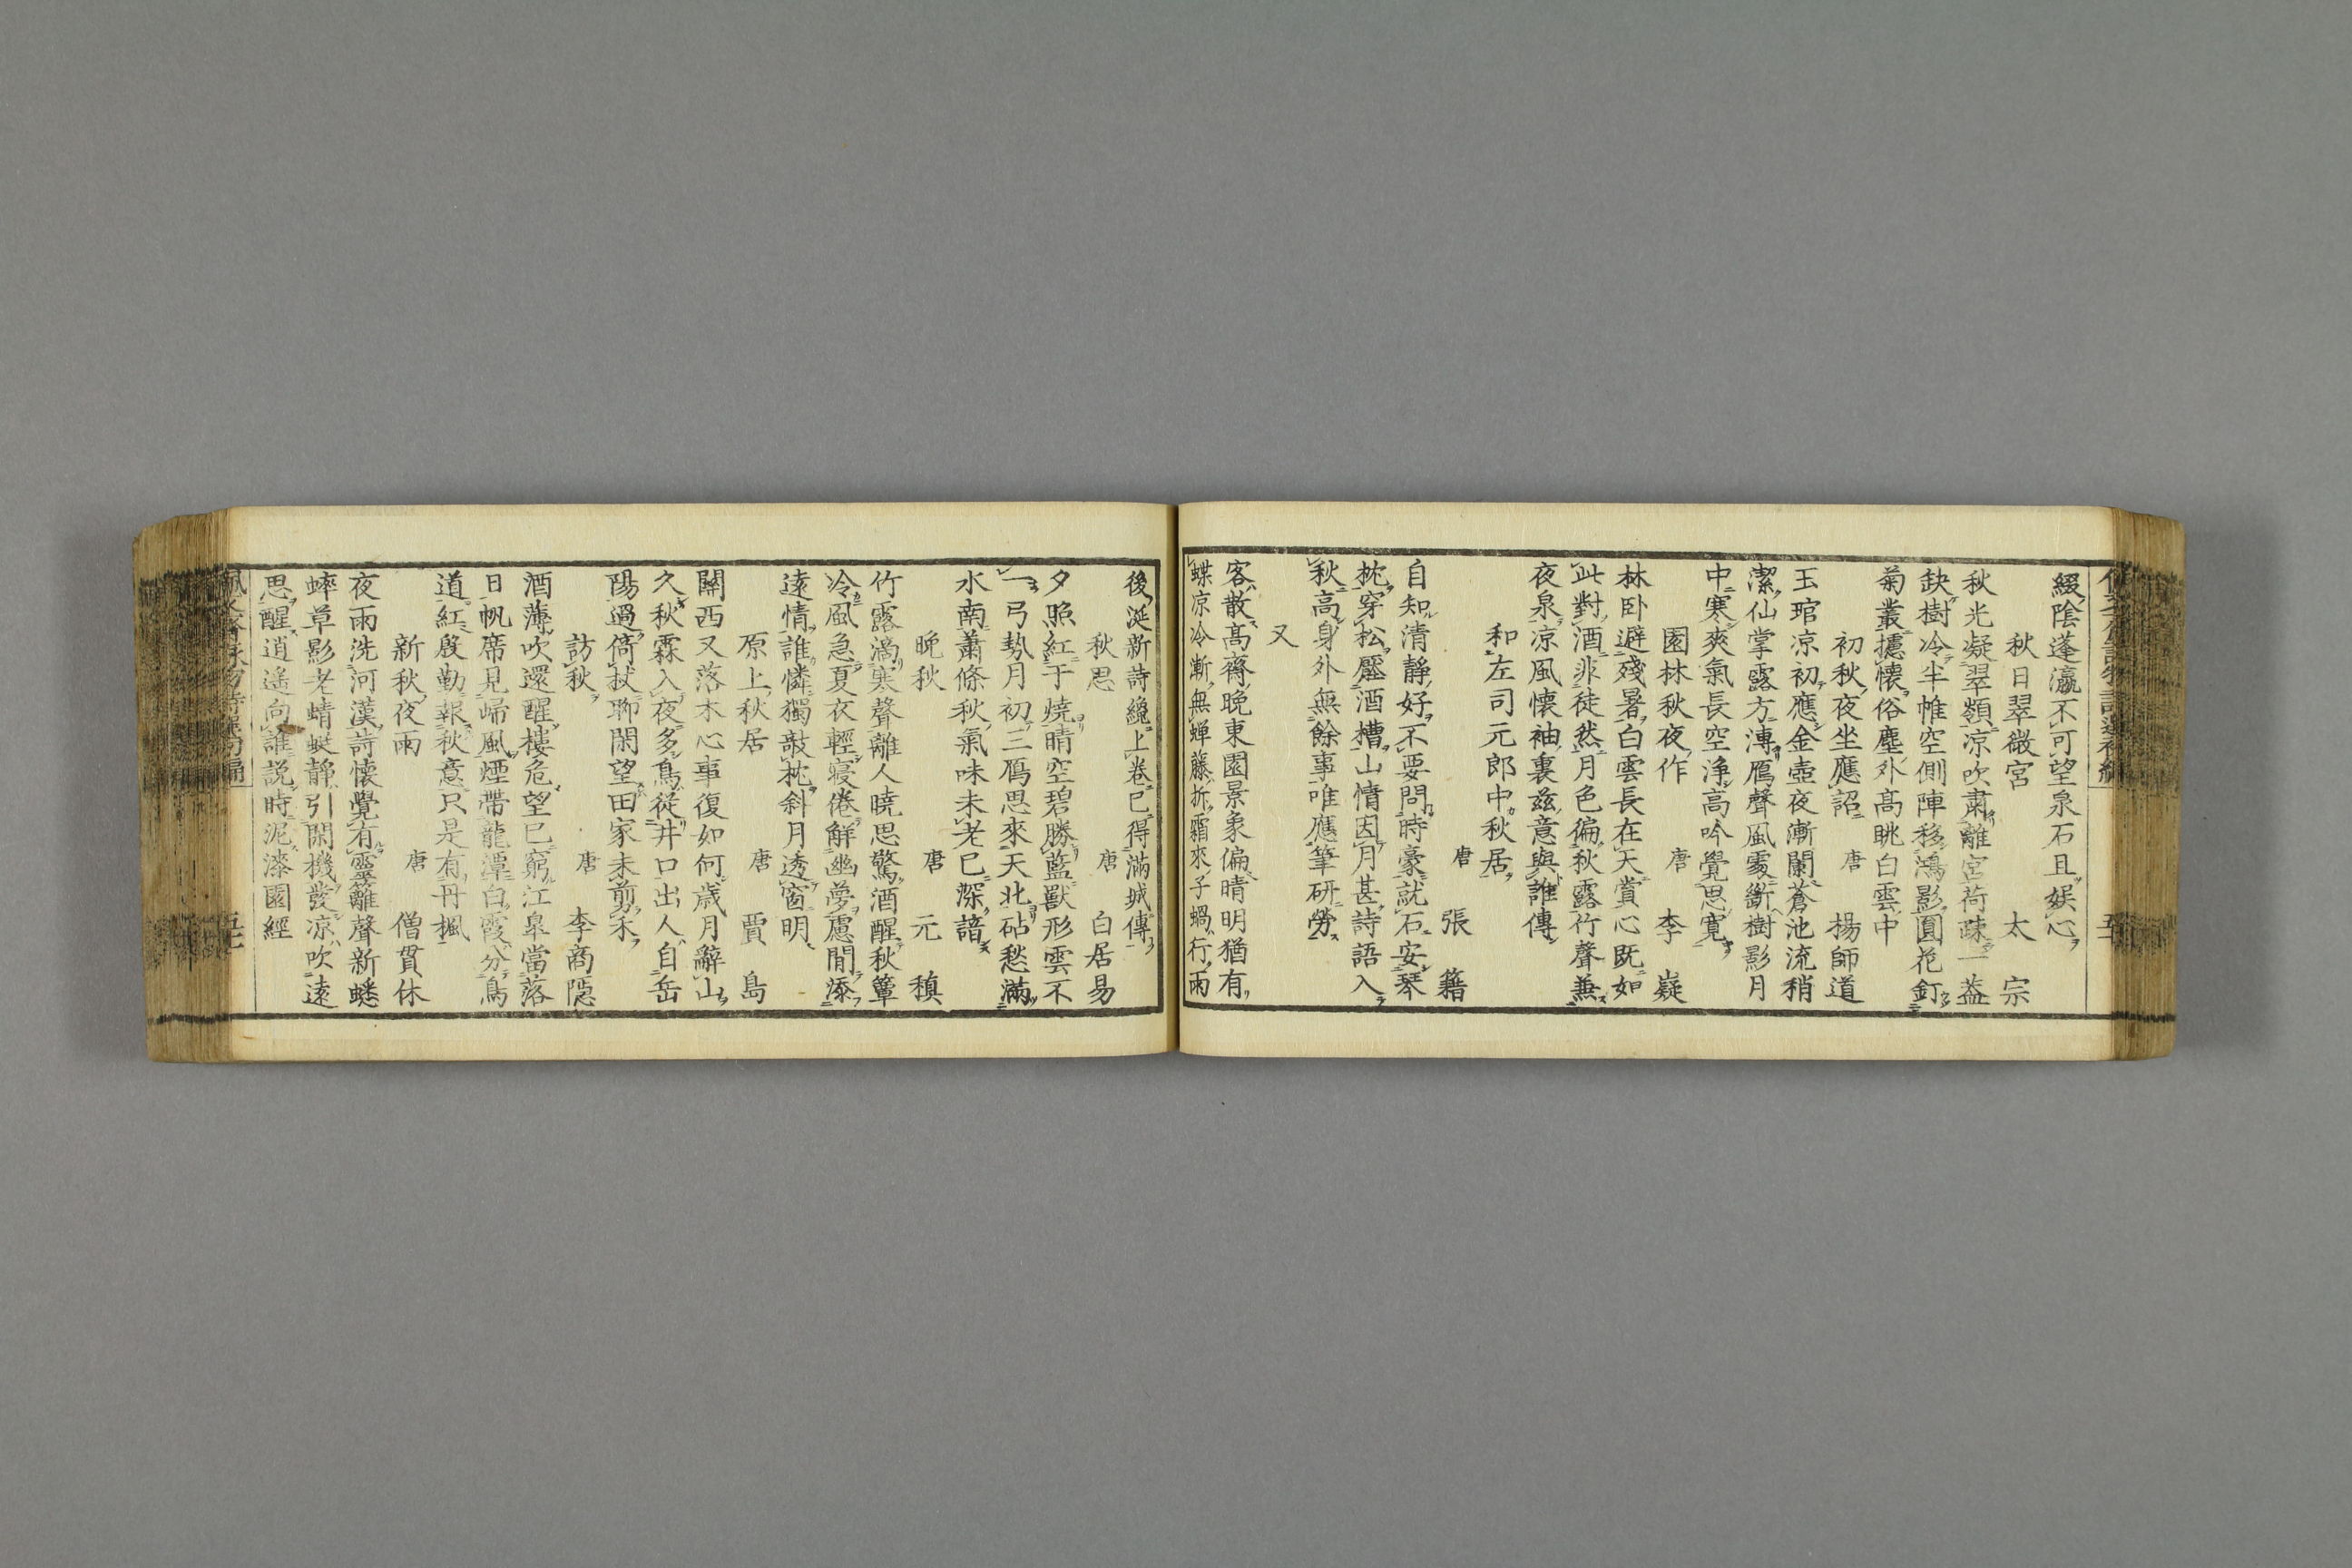 綴陰蓬瀛不可望泉石且娯心
秋日翠微宮　太宗
秋光凝翠嶺凉吹肅離宮荷疎一葢
缺樹冷半帷空側陣移鴻影圓花釘
菊叢攄懷俗塵外高眺白雲中
初秋夜坐應詔　唐　揚師道
玉琯凉初應金壺夜漸闌蒼池流稍
潔仙掌露方漙鴈聲風處斷樹影月
中寒爽氣長空浄高吟覺思寛
園林秋夜作　唐　李嶷
林卧避殘暑白雲長在天賞心既如
此對酒非徒然月色偏秋露竹聲兼
夜泉凉風懷袖裏茲意與誰傳
和左司元郎中秋居
唐　張籍
自知清静好不要問時豪就石安琴
枕穿松壓酒槽山情因月甚詩語入
秋高身外無餘事唯應筆研勞
又
客散高齋晩東園景象偏晴明猶有
蝶凉冷漸無蝉藤折霜來子蝸行雨
後涎新詩纔上卷已得滿城傳
秋思　唐　白居易
夕照紅于燒晴空碧勝藍獸形雲不
一弓勢月初三鴈思來天北砧愁滿
水南蕭條秋氣味未老已深諳
晩秋　唐　元稹
竹露滴寒聲離人曉思驚酒醒秋簟
冷風急夏衣輕寝倦觧幽夢慮閒添
遠情誰憐獨敲枕斜月透窗明
原上秋居　唐　賈島
關西又落木心事復如何歳月辭山
久秋霖入夜多鳥從井口出人自岳
陽過倚扙聊閑望田家未剪禾
訪秋　唐　李商隠
酒薄吹還醒樓危望已窮江皐當落
日帆席見歸風煙帶龍潭白霞分鳥
道紅殷勤報秋意只是有丹楓
新秋夜雨　唐　僧貫休
夜雨洗河漢詩懷覺有靈籬聲新蟋
蟀草影老蜻蜓静引閑機發凉吹遠
思醒逍遙向誰説時泥漆園經